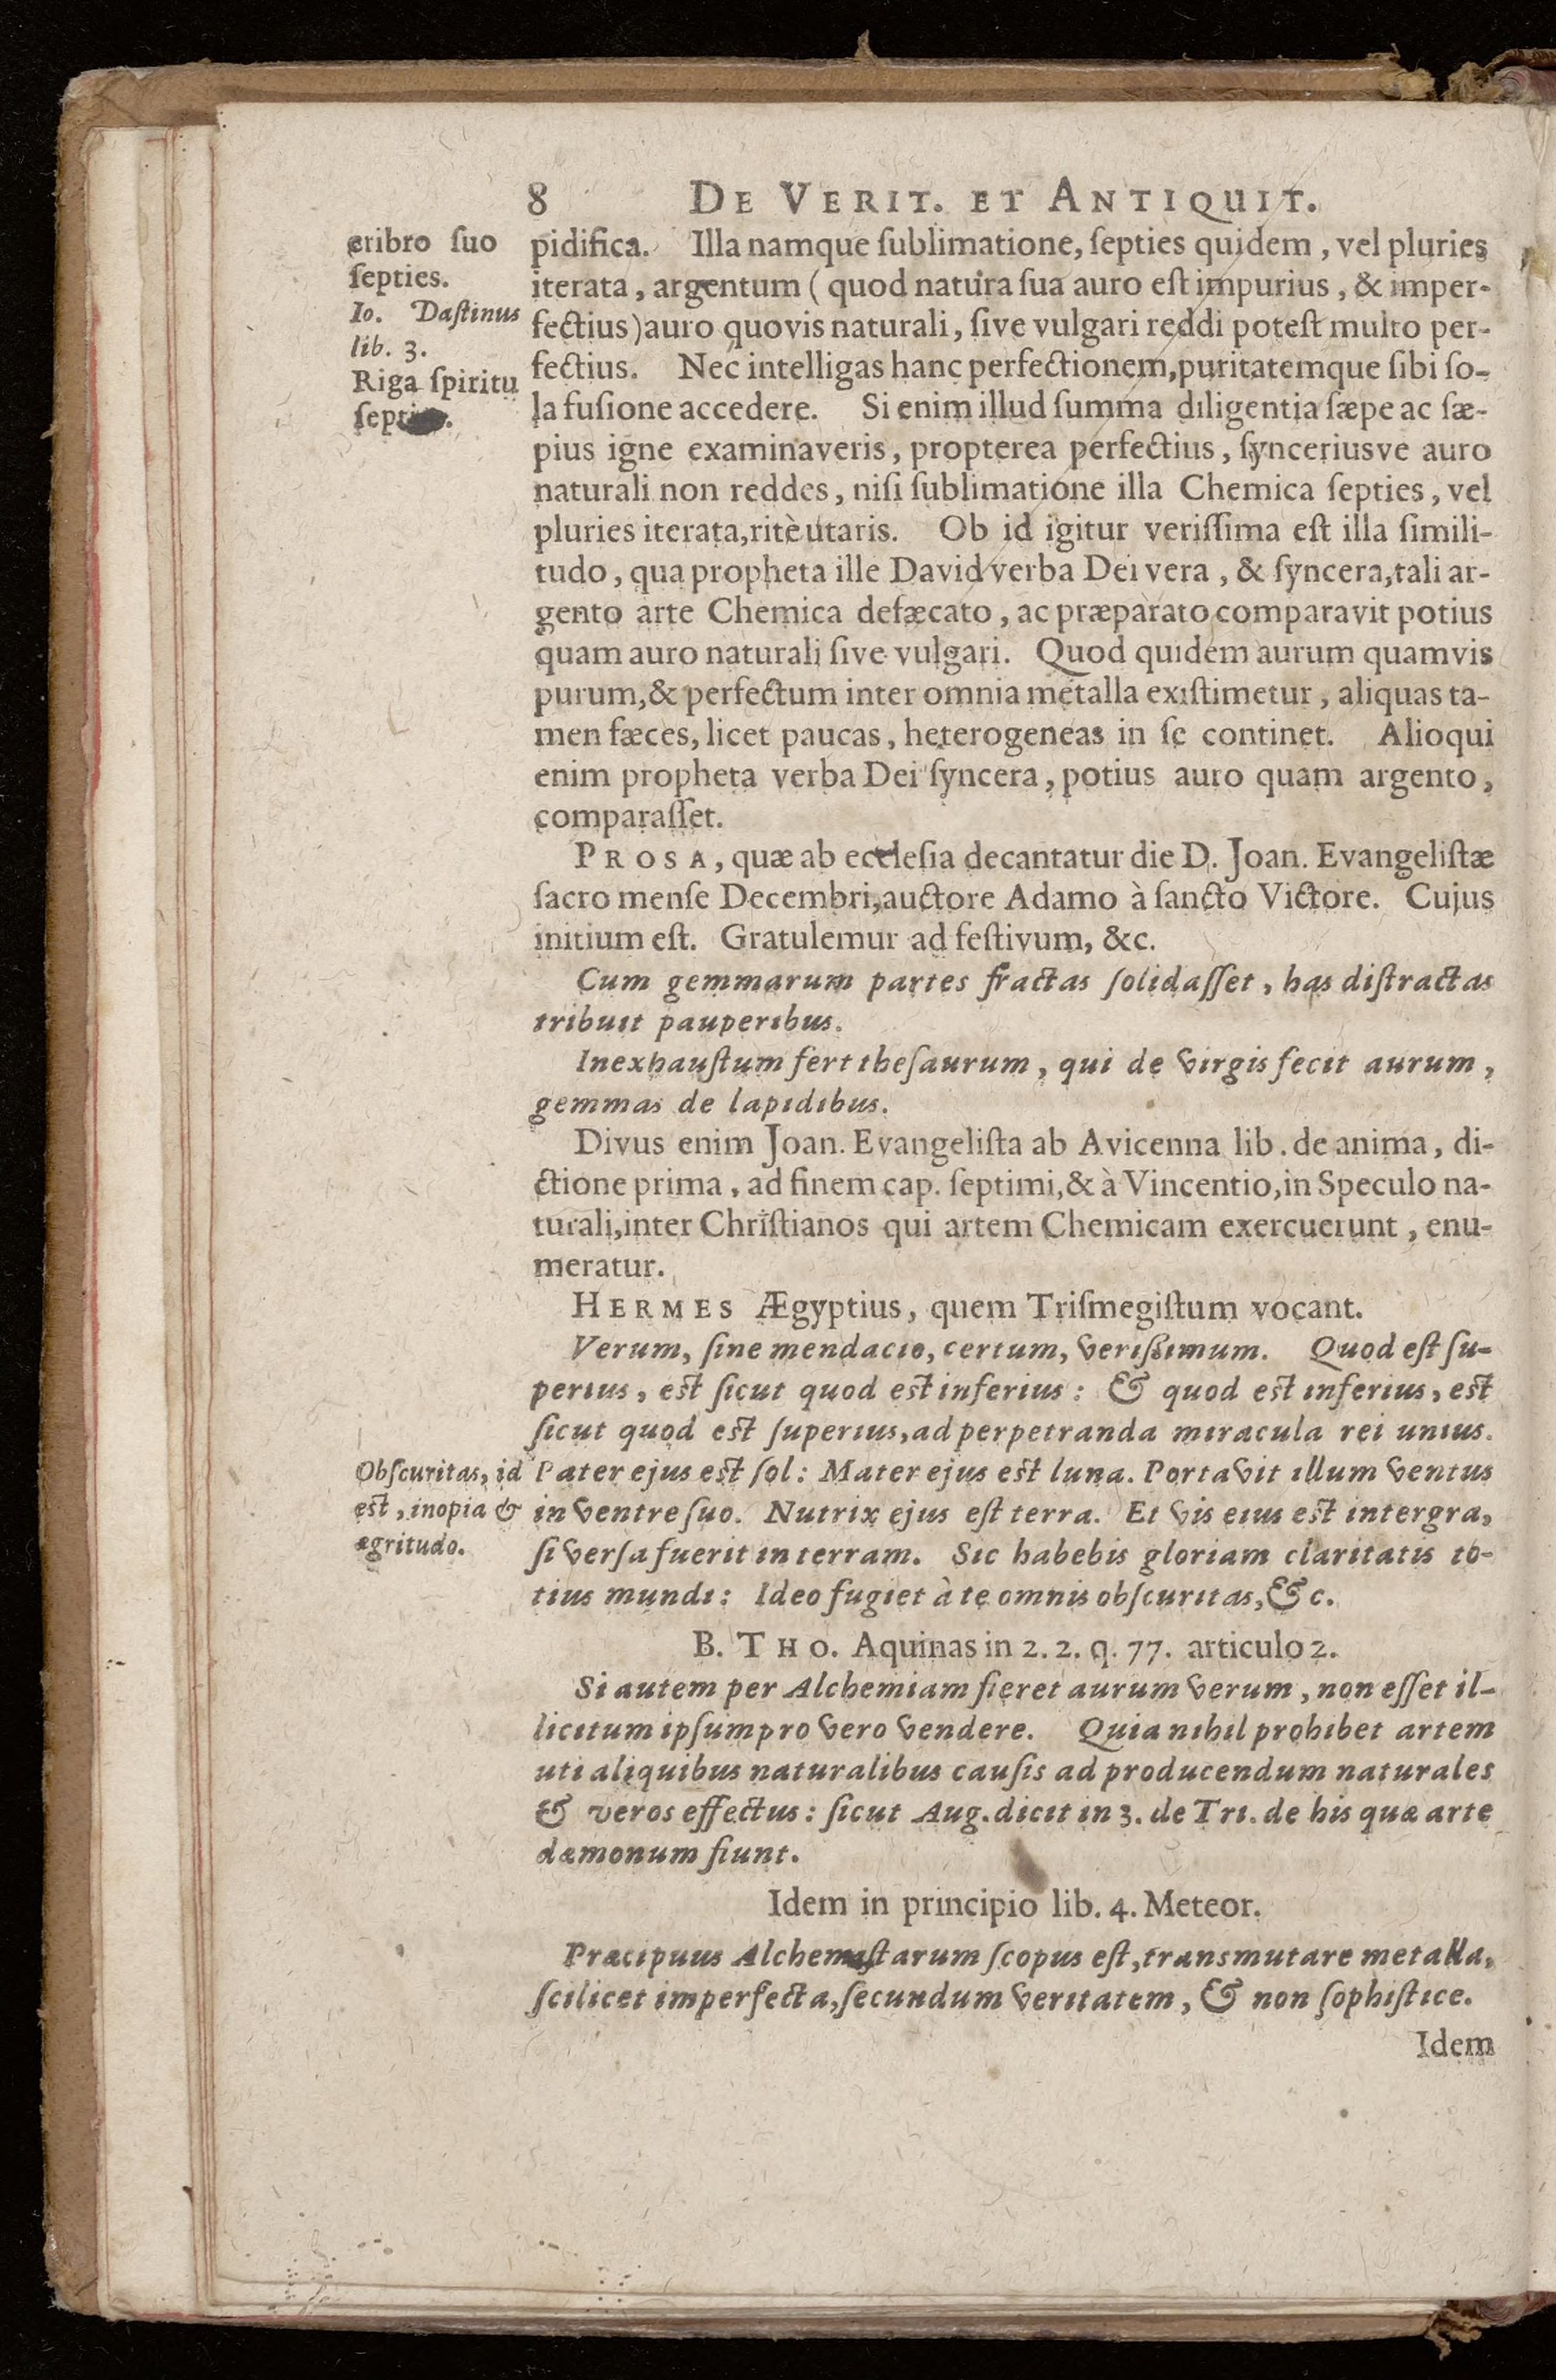 8 DE VERIT. ET ANTIQUIT.
cribro ſuo
ſepties.
Io. Daſtinus
lib. 3.
Riga ſpiritu
pidifica. Illa namque ſublimatione, ſepties quidem, vel pluries
iterata, argentum (quod natura ſua auro eſt impurius, & imper-
fectius) auro quovis naturali, ſive vulgari reddi poteſt multo per-
fectius. Nec intelligas hanc perfectionem, puritatemque ſibi ſo-
la fuſione accedere. Si enim illud ſumma diligentia ſæpe ac ſæ-
pius igne examinaveris, propterea perfectius, ſynceriusve auro
naturali non reddes, niſi ſublimatione illa Chemica ſepties, vel
pluries iterata, ritè utaris. Ob id igitur veriſſima eſt illa ſimili-
tudo, qua propheta ille David verba Dei vera, & ſyncera, tali ar-
gento arte Chemica defæcato, ac præparato comparavit potius
quam auro naturali ſive vulgari. Quod quidem aurum quamvis
purum, & perfectum inter omnia metalla exiſtimetur, aliquas ta-
men fæces, licet paucas, heterogeneas in ſe continet. Alioqui
enim propheta verba Dei ſyncera, potius auro quam argento,
comparaſſet.
PROSA, quæ ab eccleſia decantatur die D. Joan. Evangeliſtæ
ſacro menſe Decembri, auctore Adamo à ſancto Victore. Cujus
initium eſt. Gratulemur ad feſtivum, &c.
Cum gemmarum partes fractas ſolidaſſet, has diſtractas
tribuit pauperibus.
Inexhauſtum fert theſaurum, qui de virgis fecit aurum,
gemmas de lapidibus.
Divus enim Joan. Evangeliſta ab Avicenna lib. de anima, di-
ctione prima, ad finem cap. ſeptimi, & à Vincentio, in Speculo na-
turali, inter Chriſtianos qui artem Chemicam exercuerunt, enu-
meratur.
HERMES Ægyptius, quem Triſmegiſtum vocant.
Verum, ſine mendacio, certum, veriſsimum. Quod eſt ſu-
perius, eſt ſicut quod eſt inferius: & quod eſt inferius, eſt
ſicut quod eſt ſuperius, ad perpetranda miracula rei unius.
Pater ejus eſt ſol: Mater ejus eſt luna. Portavit illum ventus
in ventre ſuo. Nutrix ejus eſt terra. Et vis eius eſt intergra,
ſi verſa fuerit in terram. Sic habebis gloriam claritatis to-
tius mundi: Ideo fugiet à te omnis obſcuritas, &c.
Obſcuritas, id
eſt, inopia &
ægritudo.
B. THO. Aquinas in 2. 2. q. 77. articulo 2.
Si autem per Alchemiam fieret aurum verum, non eſſet il-
licitum ipſum pro vero vendere. Quia nihil prohibet artem
uti aliquibus naturalibus cauſis ad producendum naturales
& veros effectus: ſicut Aug. dicit in 3. de Tri. de his quæ arte
dæmonum fiunt.
Idem in principio lib. 4. Meteor.
Præcipuus Alchemiſtarum ſcopus eſt, transmutare metalla,
ſcilicet imperfecta, ſecundum veritatem, & non ſophiſtice.
Idem